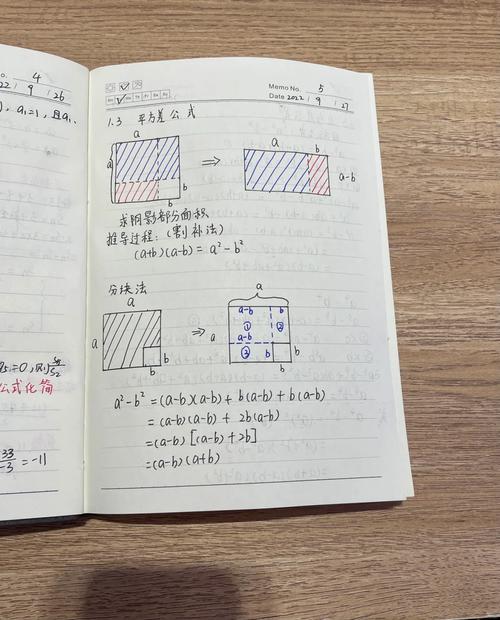 4
2022 / 9 / 26
a₁=1, 且a₁.
=0, 则 S₈/S₂
公式化简
33/-3 = -11
Memo No. 5
Date 2022 / 9 / 27
1.3 平方差公式
a
a
b
b
⇒
b
a-b
求阴影部分面积
推导过程:(割补法)
(a+b)(a-b) = a²-b²
分块法
a
a
b
b
⇒
a
a-b b
① ②
a
a-b
③ b
b
b
a²-b² = (a-b)(a-b) + b(a-b) + b(a-b)
= (a-b)(a-b) + 2b(a-b)
= (a-b) [(a-b) + 2b]
= (a-b) (a+b)